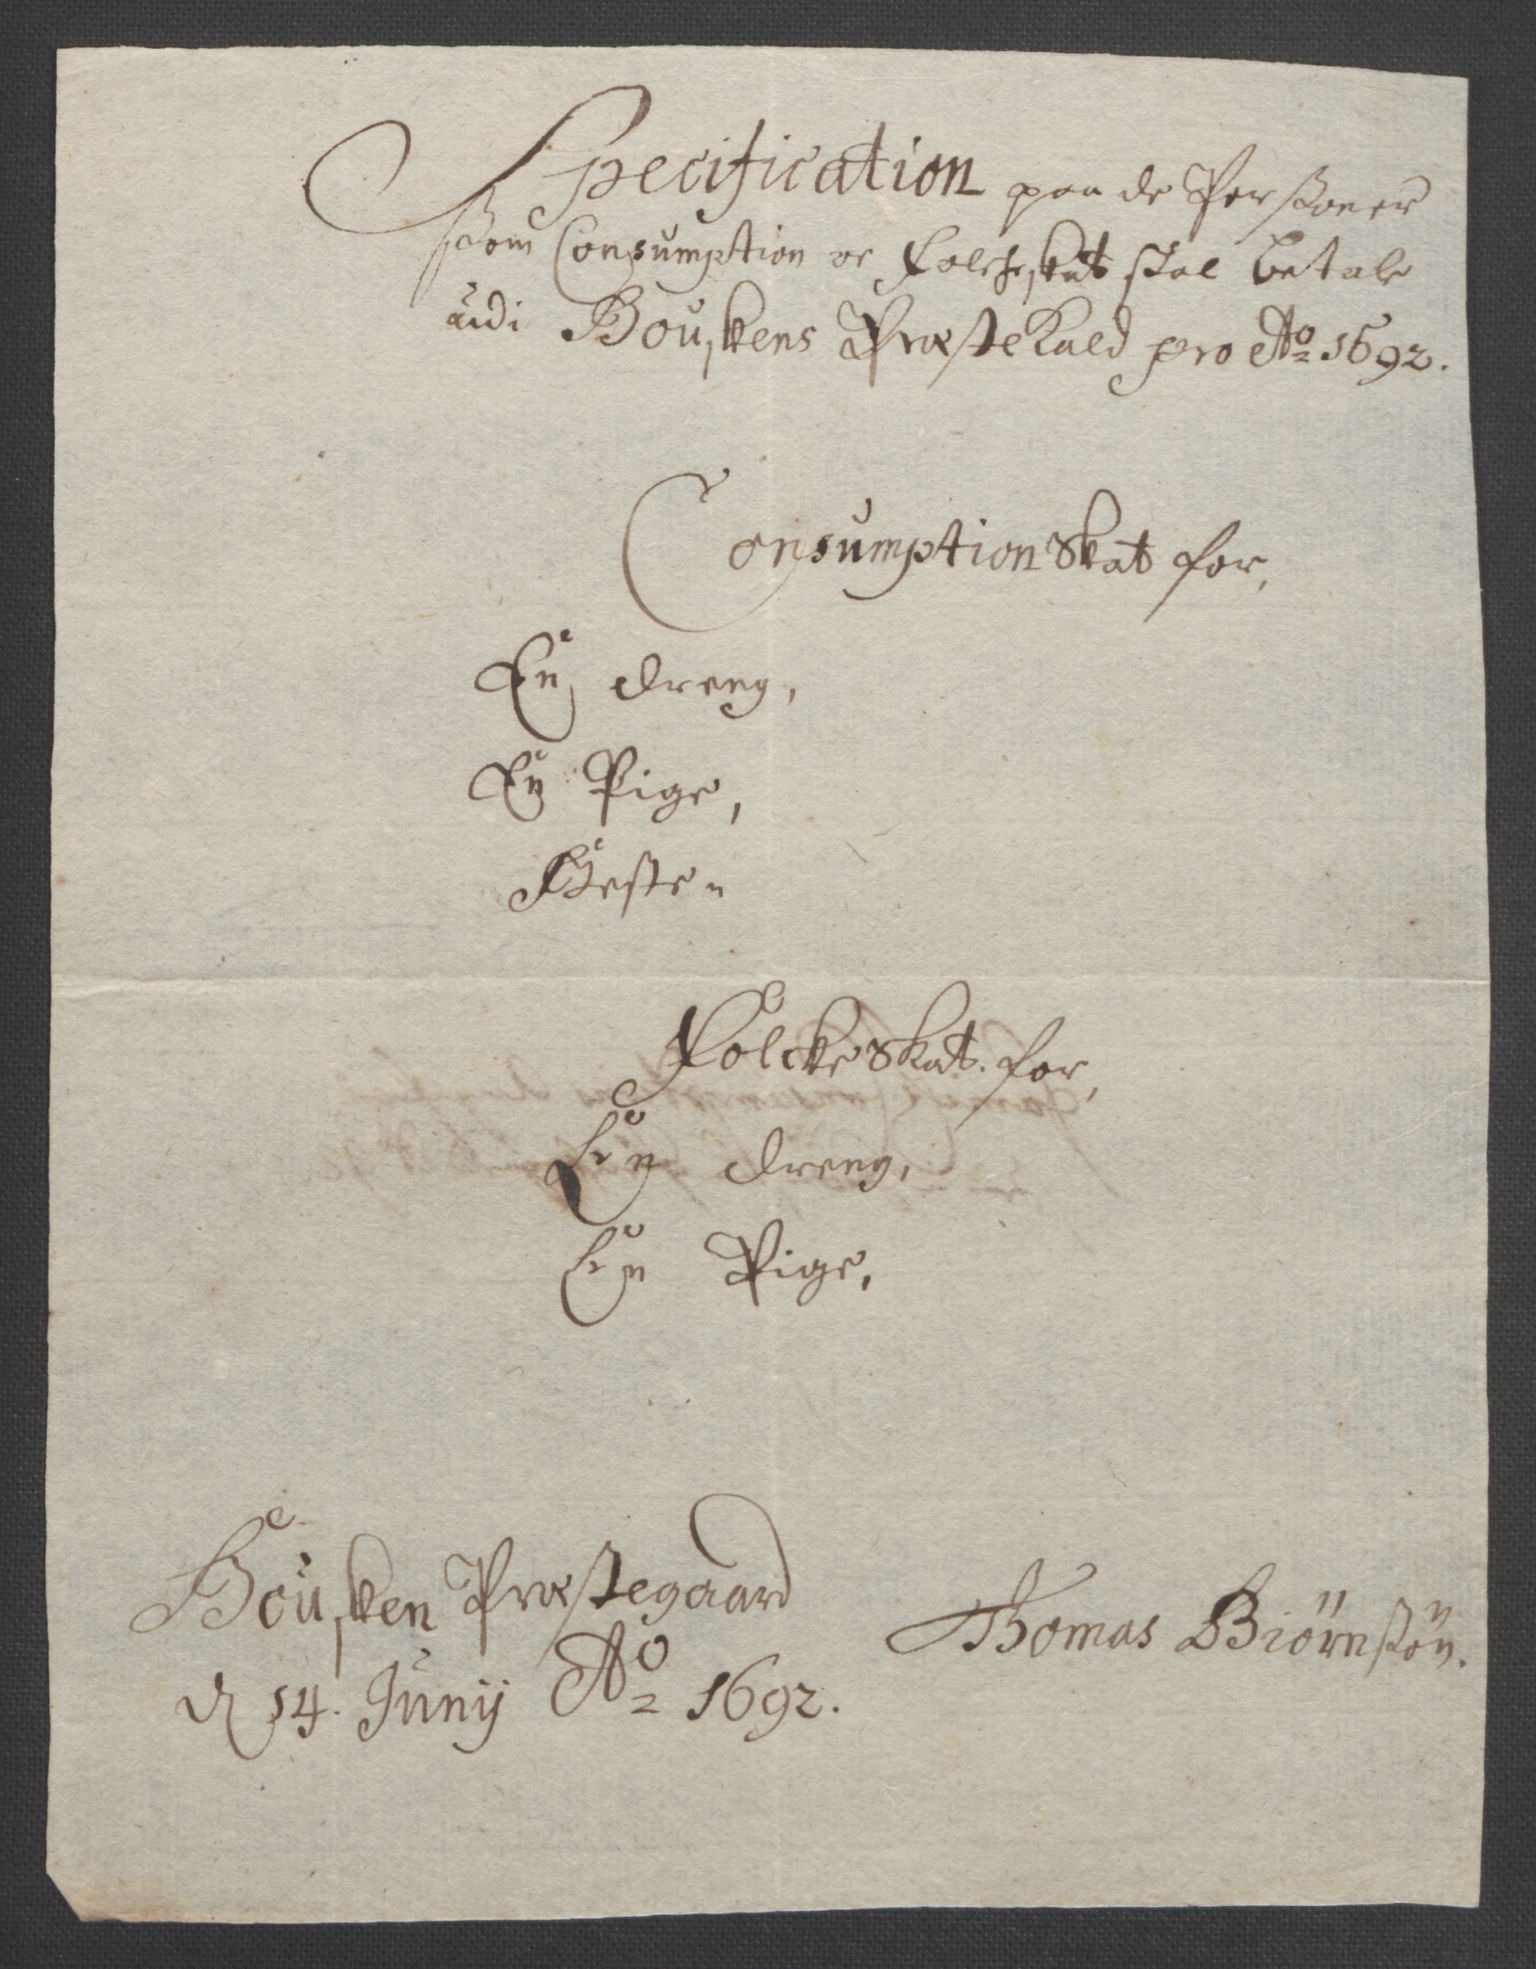 Specification paa de Perßoner
ßom Consumption oc Folcheskat skal betale
udi Bouskens Præstekald pro Ao 1692.
Consumption Skat for,
En dreng,
En Pige,
Heste
Folcke Skat. for,
Een dreng,
Een Pige,
Bousken Præstegaard
d 14. Junij Ao 1692.
Thomas Biörnßön.